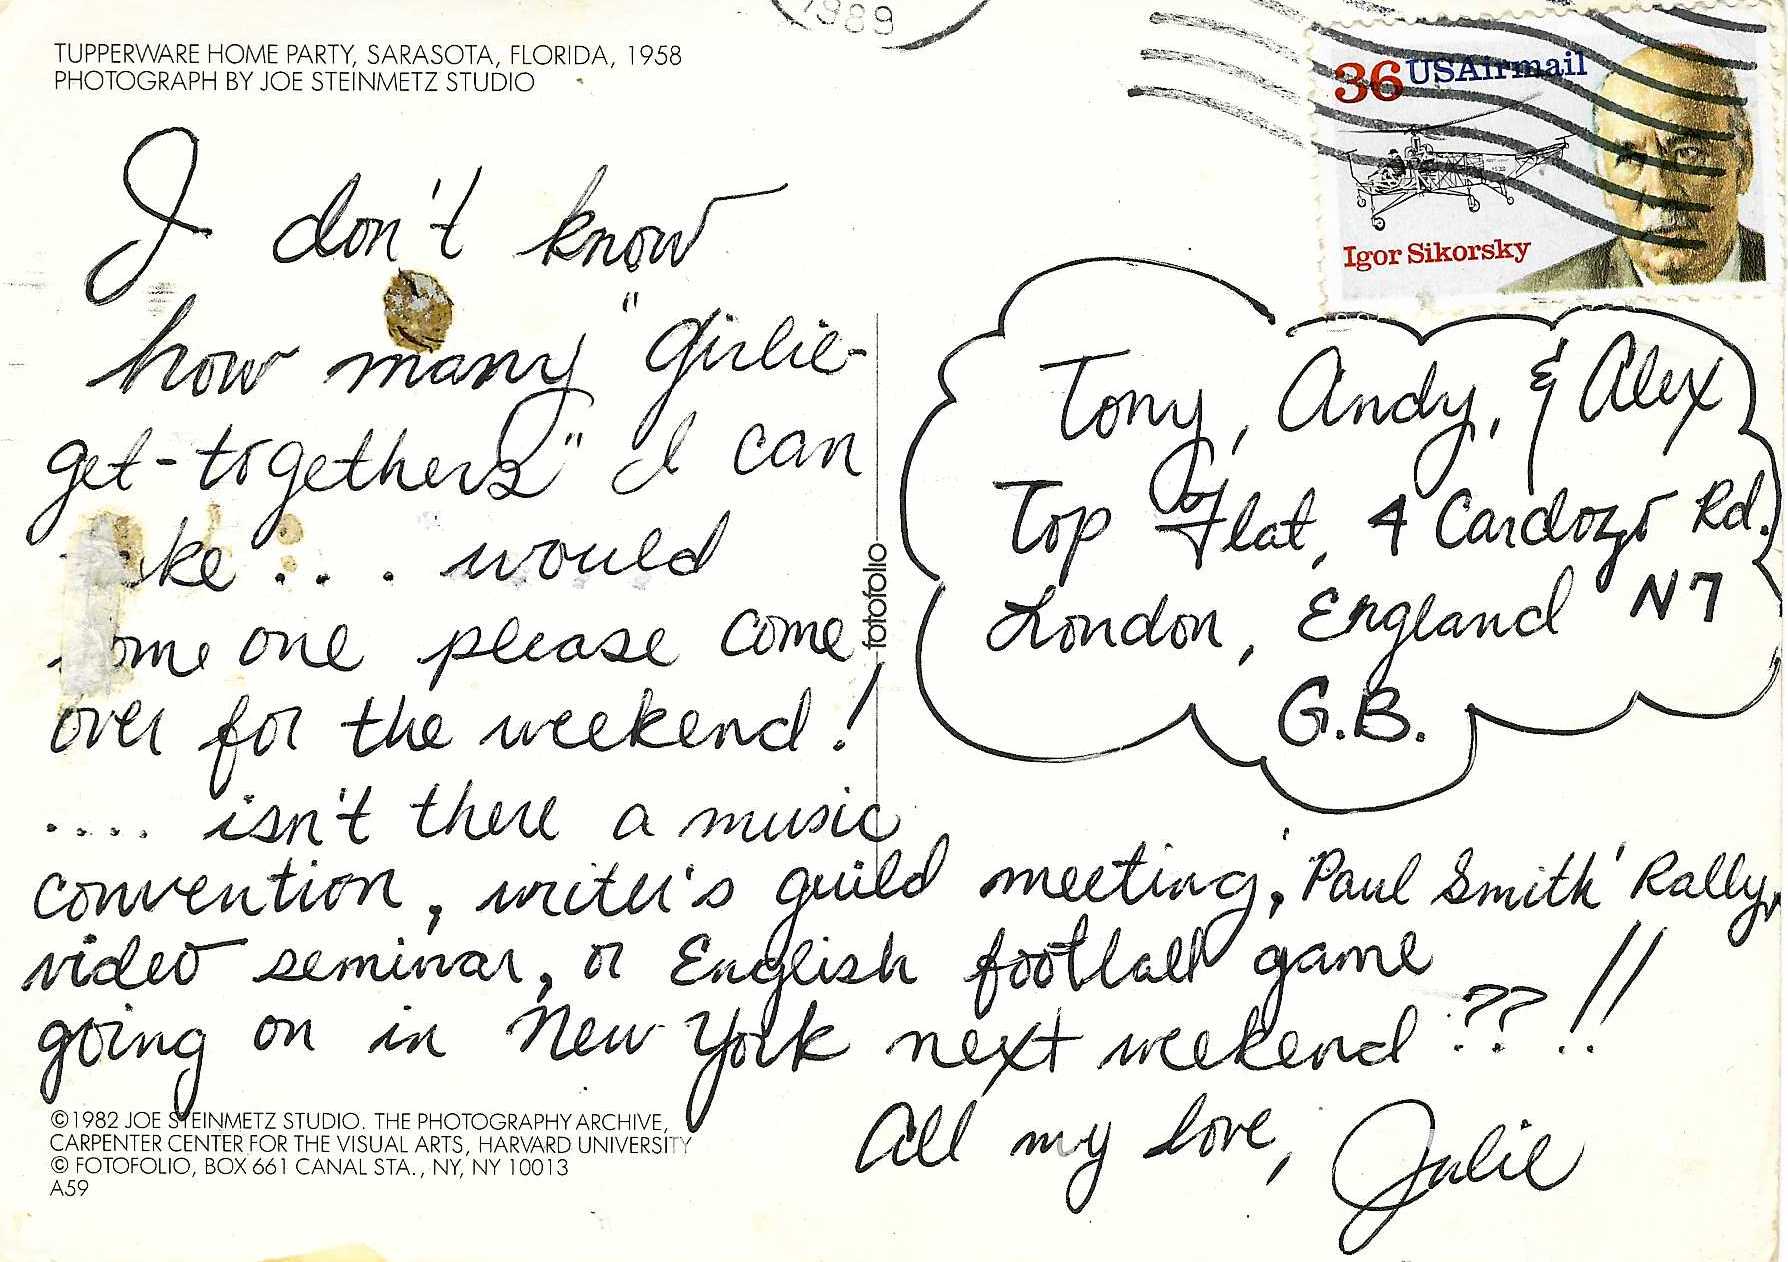 1989
TUPPERWARE HOME PARTY, SARASOTA, FLORIDA, 1958
PHOTOGRAPH BY JOE STEINMETZ STUDIO
36 USAirmail
Igor Sikorsky
I don't know
how many "Girlie-
get-togethers" I can
ke . . . would
ome one please come
over for the weekend!
.... isn't there a music
convention, writer's guild meeting, 'Paul Smith' Rally,
video seminar, or English football game
going on in New York next weekend ??!!
All my love, Julie
Tony, Andy, & Alex
Top Flat, 4 Cardozo Rd.
London, England N7
G.B.
fotofolio
©1982 JOE STEINMETZ STUDIO. THE PHOTOGRAPHY ARCHIVE,
CARPENTER CENTER FOR THE VISUAL ARTS, HARVARD UNIVERSITY
© FOTOFOLIO, BOX 661 CANAL STA., NY, NY 10013
A59